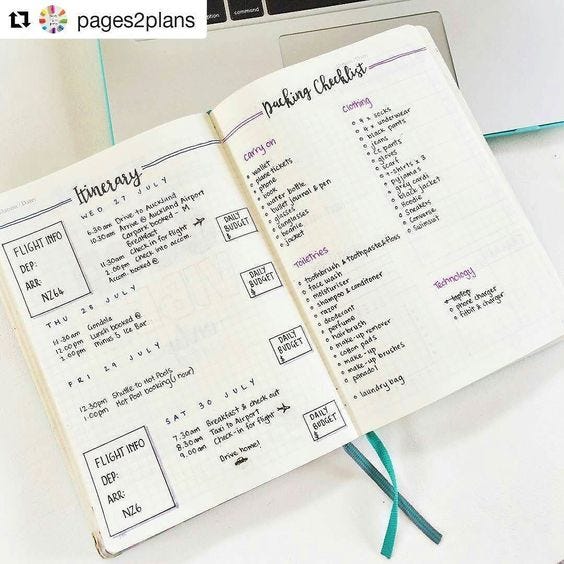 pages2plans
command
option
Itinerary
WED 27 JULY
6.30am Drive to Auckland
10.30am Arrive @ Auckland Airport
Carpark booked - M
Breakfast
11.30am Check-in for flight
2.00pm Check into accom.
Accom. booked @
FLIGHT INFO
DEP:
ARR:
NZ64
DAILY
BUDGET
$
THU 28 JULY
11.30am Gondola
12.00pm Lunch booked @
2.00pm Minus 5 Ice Bar
DAILY
BUDGET
$
FRI 29 JULY
12.30pm Shuttle to Hot Pools
1.00pm Hot Pool booking (1 hour)
DAILY
BUDGET
$
SAT 30 JULY
7.30am Breakfast & check out
8.30am Taxi to Airport
9.00am Check-in for flight
Drive home!
FLIGHT INFO
DEP:
ARR:
NZ6
DAILY
BUDGET
$
Packing Checklist
Carry on
wallet
plane tickets
phone
book
water bottle
bullet journal & pen
glasses
sunglasses
beanie
jacket
Toiletries
toothbrush & toothpaste & floss
face wash
moisturiser
shampoo & conditioner
razor
deodorant
perfume
hairbrush
make-up remover
cotton pads
make-up
make-up brushes
panadol
laundry bag
Clothing
4 x socks
4 x underwear
black pants
jeans
pants
gloves
scarf
t-shirts x 3
pyjamas
grey cardy
black jacket
hoodie
sneakers
converse
swimsuit
Technology
laptop
phone charger
fitbit & charger